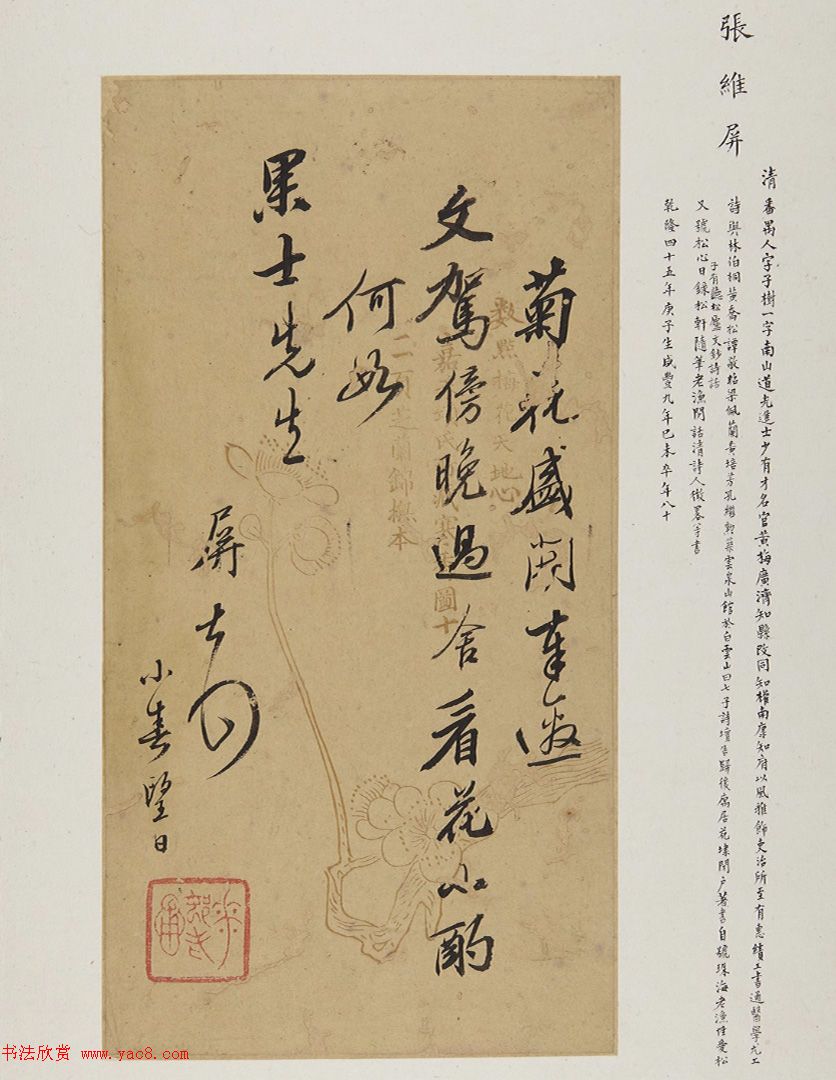 張維屏
清番禺人字子樹一字南山道光進士少有才名官黄梅廣濟知縣改同知權南康知府以風雅飾吏治所至有惠績工書通醫學尤工
詩與林伯桐黄喬松譚敬昭梁佩蘭黄培芳孔繼勲築雲泉山館於白雲山曰七子詩壇告歸後寓居花埭閉户著書自號珠海老漁性愛松
又號松心日録松軒隨筆老漁閒話清詩人徵畧等書
子有聽松廬文鈔詩話
乾隆四十五年庚子生咸豐九年己未卒年八十
菊花盛開奉邀
文駕傍晚過舍看花小酌
何如
果士先生
屏
小春望日
數點梅花天地心
二百芝蘭錦橅本
书法欣赏 www.yac8.com